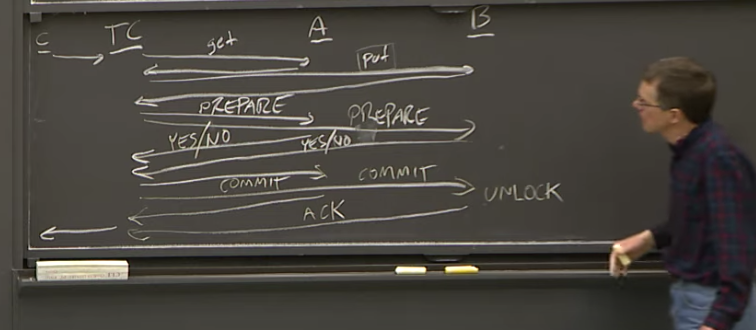 C TC A B
get
put
PREPARE PREPARE
YES/NO YES/NO
COMMIT COMMIT UNLOCK
ACK